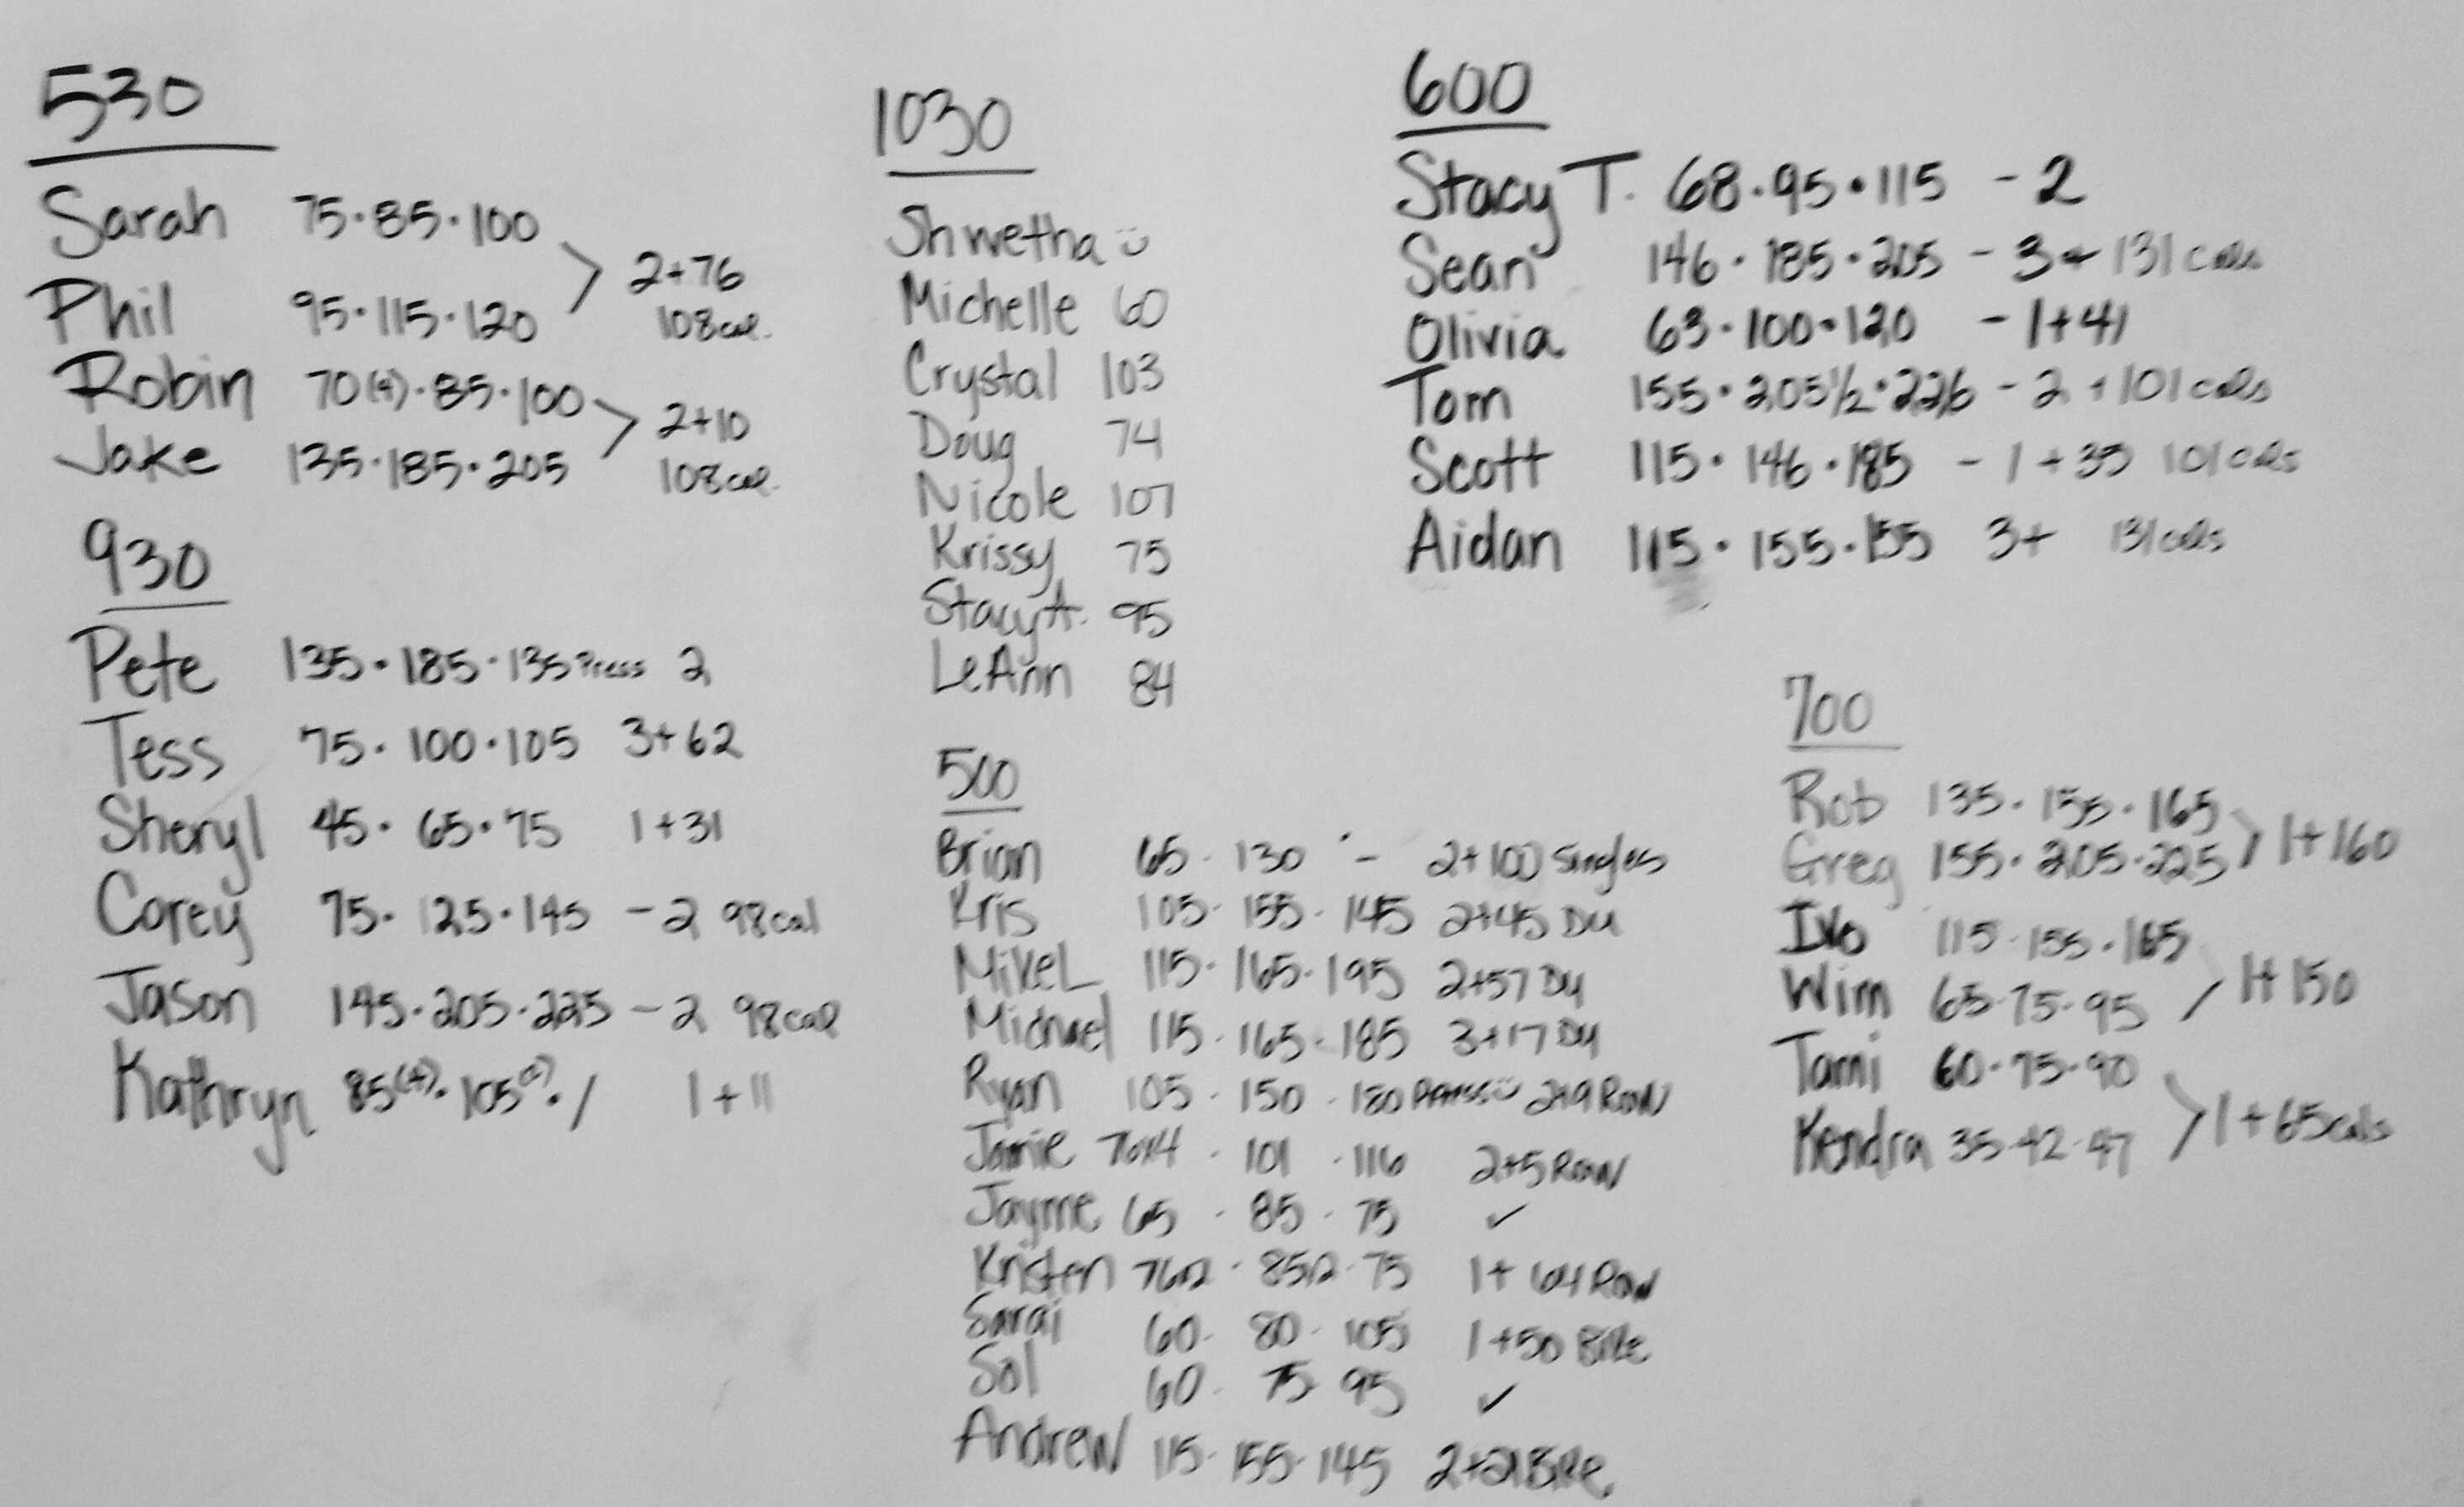 530
Sarah 75·85·100
Phil 95·115·120
> 2+76
108cal.
Robin 70(4)·85·100
Jake 135·185·205
> 2+10
108cal.
930
Pete 135·185·135 Press 2
Tess 75·100·105 3+62
Sheryl 45·65·75 1+31
Corey 75·125·145 - 2 98cal
Jason 145·205·225 - 2 98cal
Kathryn 85(4)·105 · / 1+11
1030
Shwetha
Michelle 60
Crystal 103
Doug 74
Nicole 107
Krissy 75
Stacy A. 95
LeAnn 84
500
Brian 65·130·- 2+100 Singles
Kris 105·155·145 2+45 DU
Mike L 115·165·195 2+57 DU
Michael 115·165·185 3+17 DU
Ryan 105·150·180 2+9 Row
Jamie 76x4·101·116 2+5 Row
Jayme 65·85·75 ✓
Kristen 75 1+64 Row
Sarai 60·80·105 1+50 Bike
Sol 60·75·95 ✓
Andrew 115·155·145 2+21 Bike
600
Stacy T. 68·95·115 - 2
Sean 146·185·205 - 3+ 131 cals
Olivia 63·100·120 - 1+41
Tom 155·205½·226 - 2 + 101 cals
Scott 115·146·185 - 1+35 101 cals
Aidan 115·155·155 3+ 131 cals
700
Rob 135·155·165
Greg 155·205·225
> 1+160
Ivo 115·155·165
Wim 65·75·95
/ 1+150
Tami 60·75·90
Kendra 35·42·47
> 1+65cals